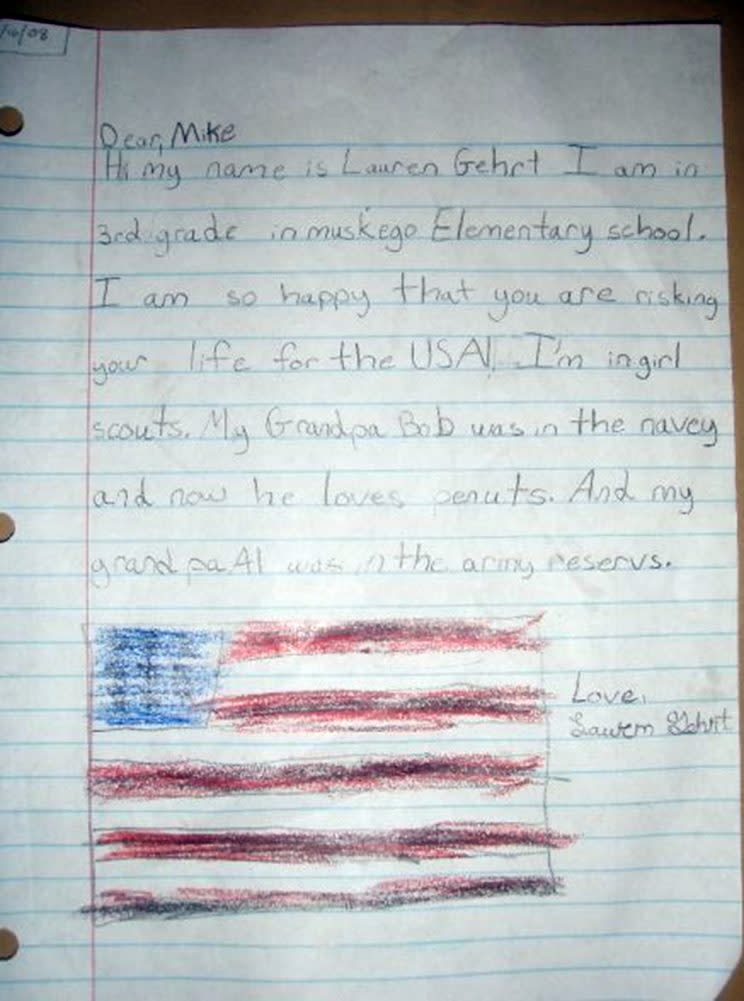 /16/08
Dear, Mike
Hi my name is Lauren Gehrt I am in
3rd grade in muskego Elementary school.
I am so happy that you are risking
your life for the USA! I'm in girl
scouts. My Grandpa Bob was in the navey
and now he loves penuts. And my
grandpa Al was in the army reservs.
Love,
Lauren Gehrt